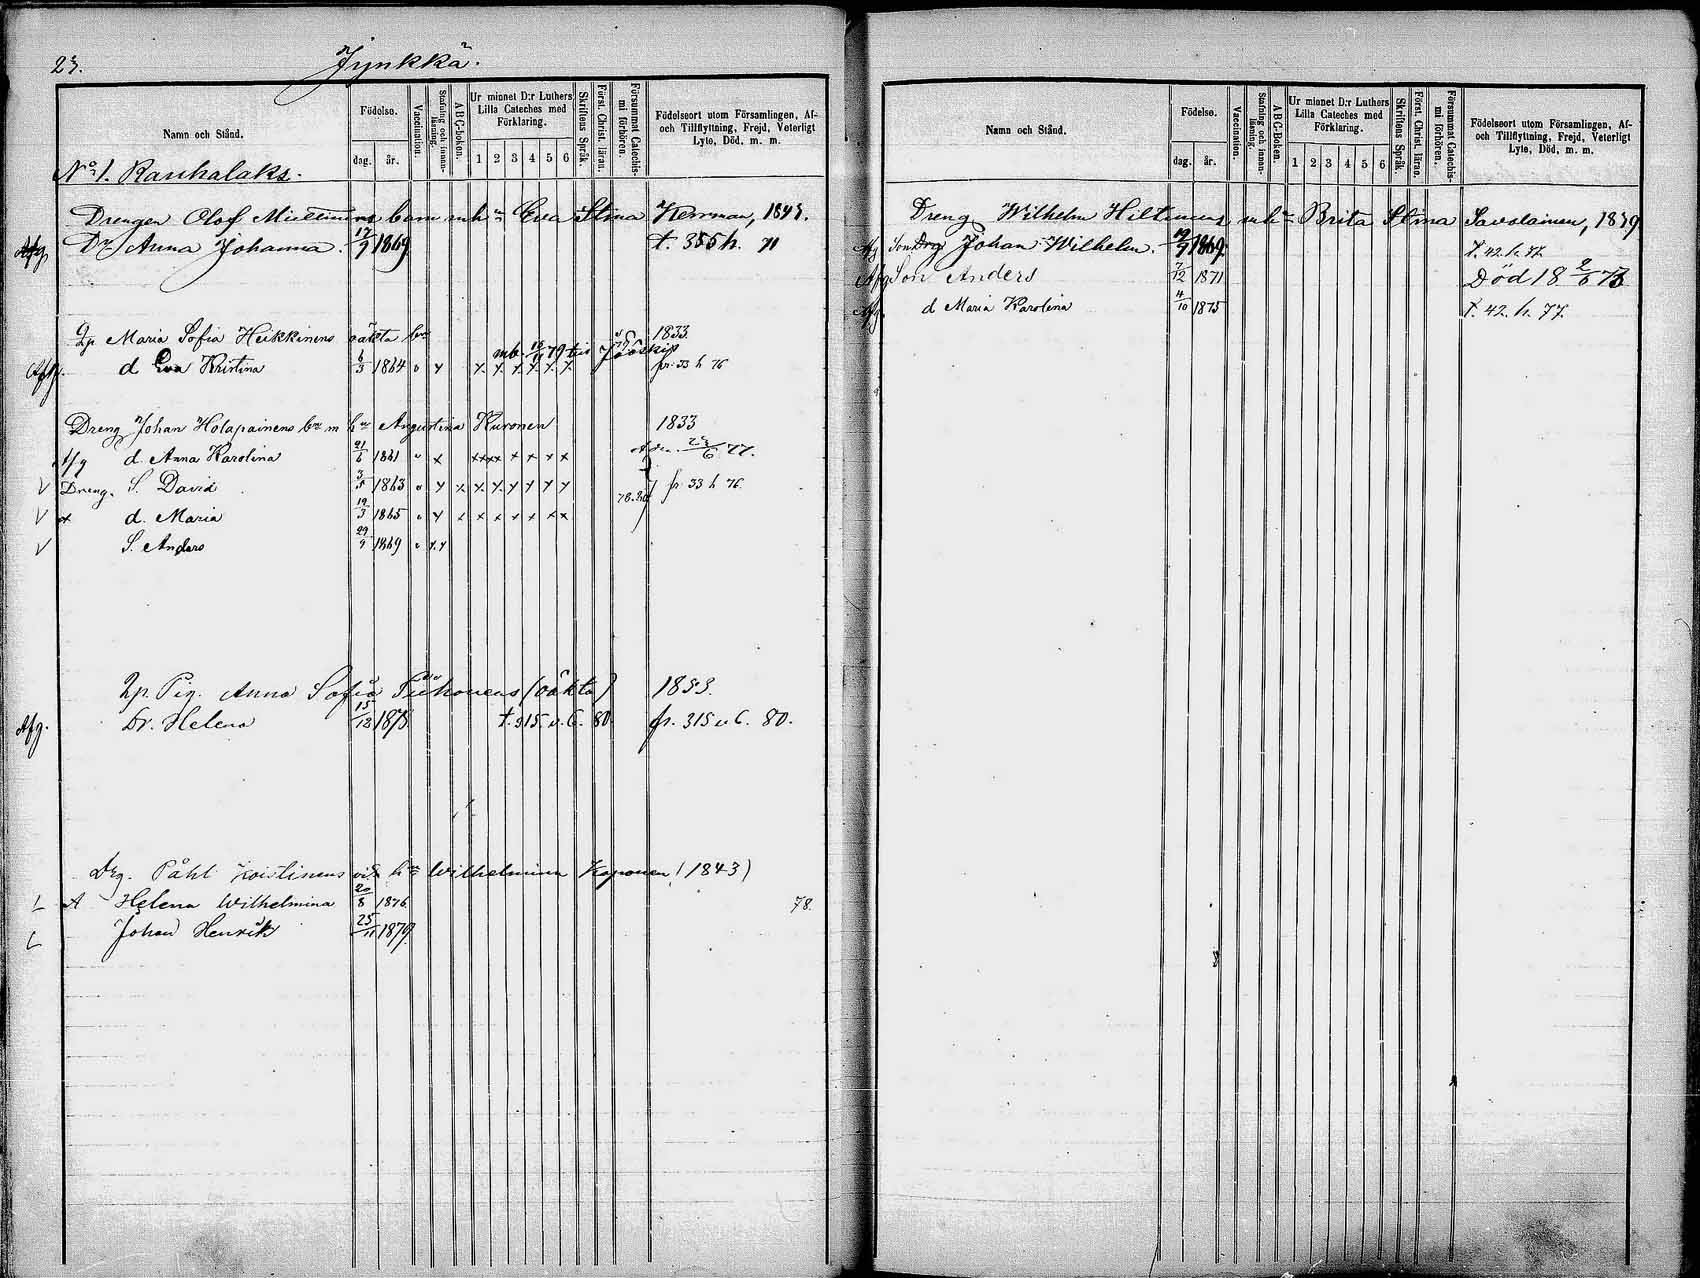 23.
Jynkkä.
Namn och Stånd.
Födelse.
dag.
år.
Vaccination.
Stafning och innan-läsning.
ABC-boken.
Ur minnet D:r Luthers Lilla Cateches med Förklaring.
1 2 3 4 5 6
Skriftens Språk.
Först. Christ. läran.
Försummat Catechis-mi förhören.
Födelseort utom Församlingen, Af- och Tillflyttning, Frejd, Veterligt Lyte, Död, m. m.
No 1. Rauhalaks.
Drengen Olof barn m h Eva Stina Herrman, 1843.
Afg Dr Anna Johanna. 17/9 1869 t. 355 h. 71
Lp Maria Sofia Heikkinens oäkta bn 1833.
mb. 79 till
Afg. d Eva Kristina 6/3 1864 fr. 33 h 76
Dreng Johan Holapainens bn m hu Augustina Kuronen 1833
Afg d. Anna Karolina 21/6 1861 77.
V Dreng. S. David 3/5 1863 fr 33 h 76.
78.80
V x d. Maria 19/3 1865
V S. Anders 29/9 1869
Lp. Pig. Anna Sofia Tuhonens (oäkta) 1853.
Afg. Dr. Helena 15/12 1878 t. 315 v. C. 80 fr. 315 v C. 80.
Drg. Påhl Koistinens vid hu Wilhelmina Kaponen (1843)
L A Helena Wilhelmina 20/8 1876 78.
L Johan Henrik 25/11 1879
Namn och Stånd.
Födelse.
dag.
år.
Vaccination.
Stafning och innan-läsning.
ABC-Boken.
Ur minnet D:r Luthers Lilla Cateches med Förklaring.
1 2 3 4 5 6
Skriftens Språk.
Först. Christ. läran.
Försummat Catechis-mi förhören.
Födelseort utom Församlingen, Af- och Tillflyttning, Frejd, Veterligt Lyte, Död, m. m.
Dreng Wilhelm Hiltunens m h Brita Stina Savolainen, 1839
Afg Son Johan Wilhelm. 19/9 1869 t. 42. h. 77.
Afg Son Anders 7/12 1871 Död 18 2/6 73
Afg. d Maria Karolina 4/10 1875 t. 42. h. 77.